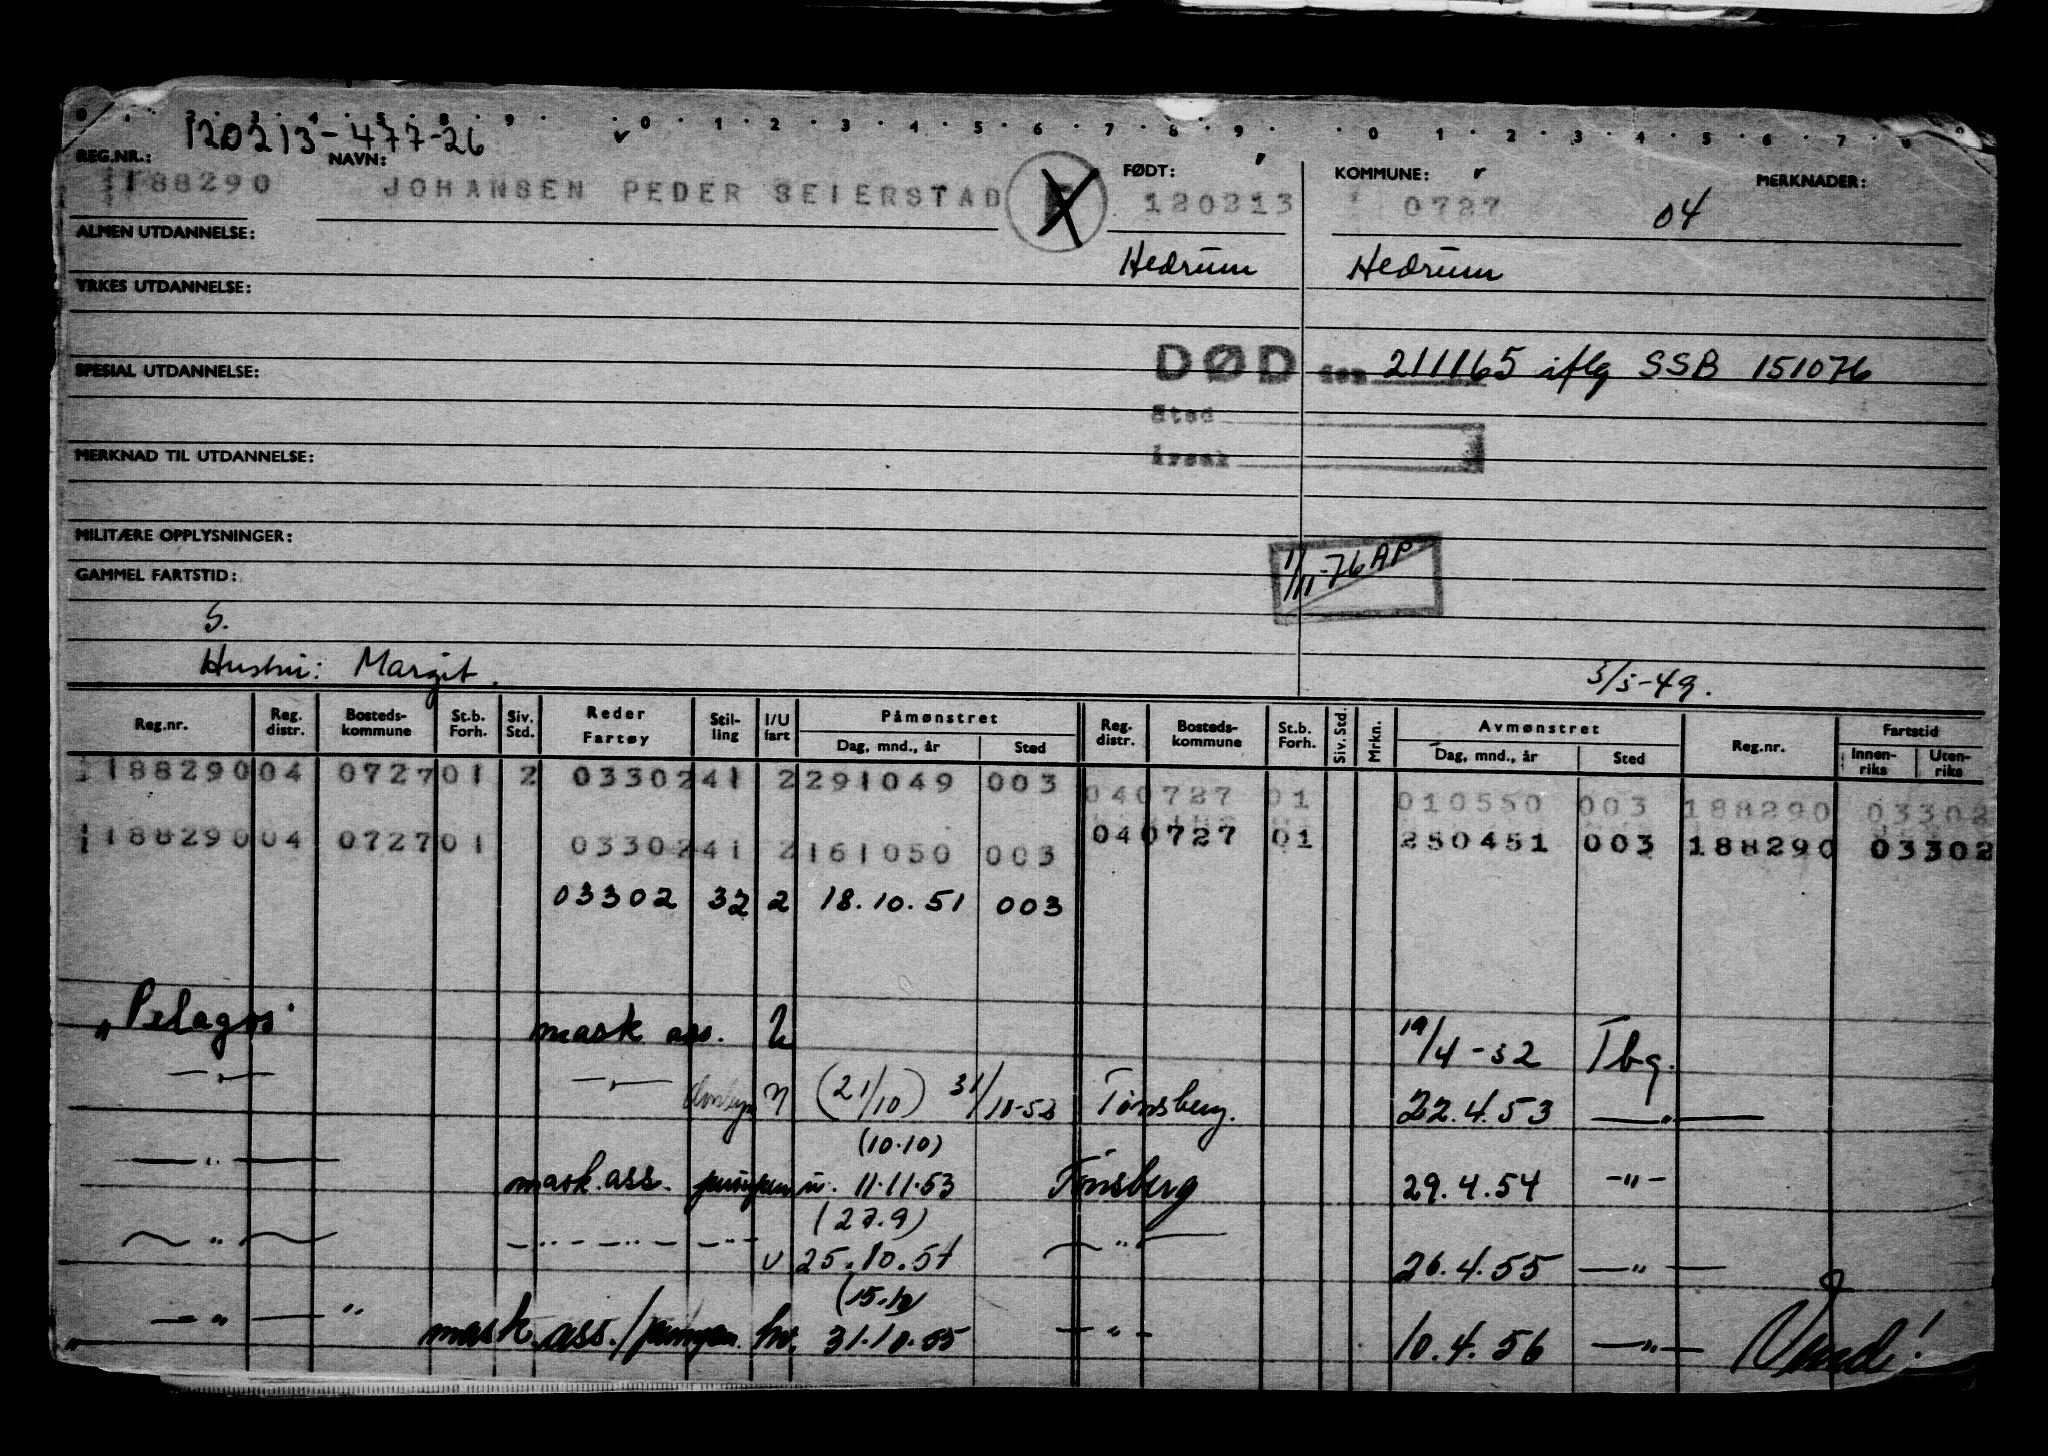 120213-477-26
REG.NR.: NAVN: FØDT: KOMMUNE: MERKNADER:
188290 JOHANSEN PEDER SEIERSTAD 120213 0727 04
ALMEN UTDANNELSE: Hedrum Hedrum
YRKES UTDANNELSE:
SPESIAL UTDANNELSE: DØD den 211165 iflg SSB 151076
Sted
Årsak
MERKNAD TIL UTDANNELSE:
MILITÆRE OPPLYSNINGER: 1/11-76 AP
GAMMEL FARTSTID:
S.
Hustru: Margit. 3/5-49.
Reg.nr. Reg. distr. Bosteds-kommune St.b. Forh. Siv. Std. Reder Fartøy Stil-ling I/U fart Påmønstret Dag, mnd., år Sted Reg. distr. Bosteds-kommune St.b. Forh. Siv. Std. Mrkn. Avmønstret Dag, mnd., år Sted Reg.nr. Fartstid Innen-riks Uten-riks
188290 04 0727 01 2 03302 41 2 291049 003 04 0727 01 010550 003 188290 03302
188290 04 0727 01 03302 41 2 161050 003 04 0727 01 250451 003 188290 03302
03302 32 2 18.10.51 003
"Pelagos" mask ass. 19/4-52 Tbg.
—"— —"— (21/10) 31/10-52 Tønsberg. 22.4.53 —"—
(10.10)
—"— mask.ass. u. 11.11.53 Tønsberg 29.4.54 -"-
(27.9)
—"— —"— —"— u 25.10.54 —"— 26.4.55 —"—
(15.10)
—"— " mask.ass./ 31.10.55 —"— 10.4.56 —"—